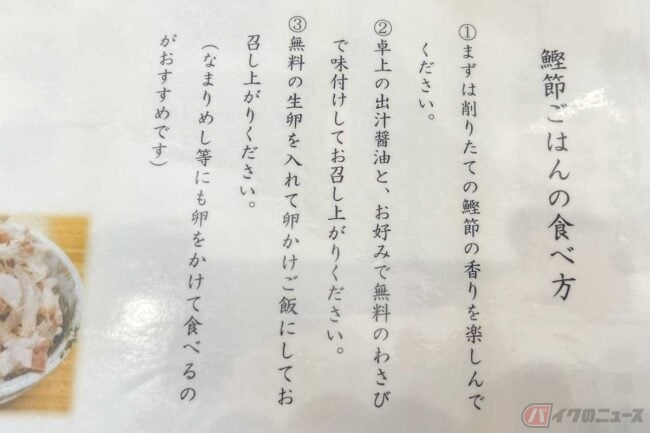 鰹節ごはんの食べ方
①まずは削りたての鰹節の香りを楽しんで
ください。
②卓上の出汁醤油と、お好みで無料のわさび
で味付けしてお召し上がりください。
③無料の生卵を入れて卵かけご飯にしてお
召し上がりください。
(なまりめし等にも卵をかけて食べるの
がおすすめです)
バイクのニュース